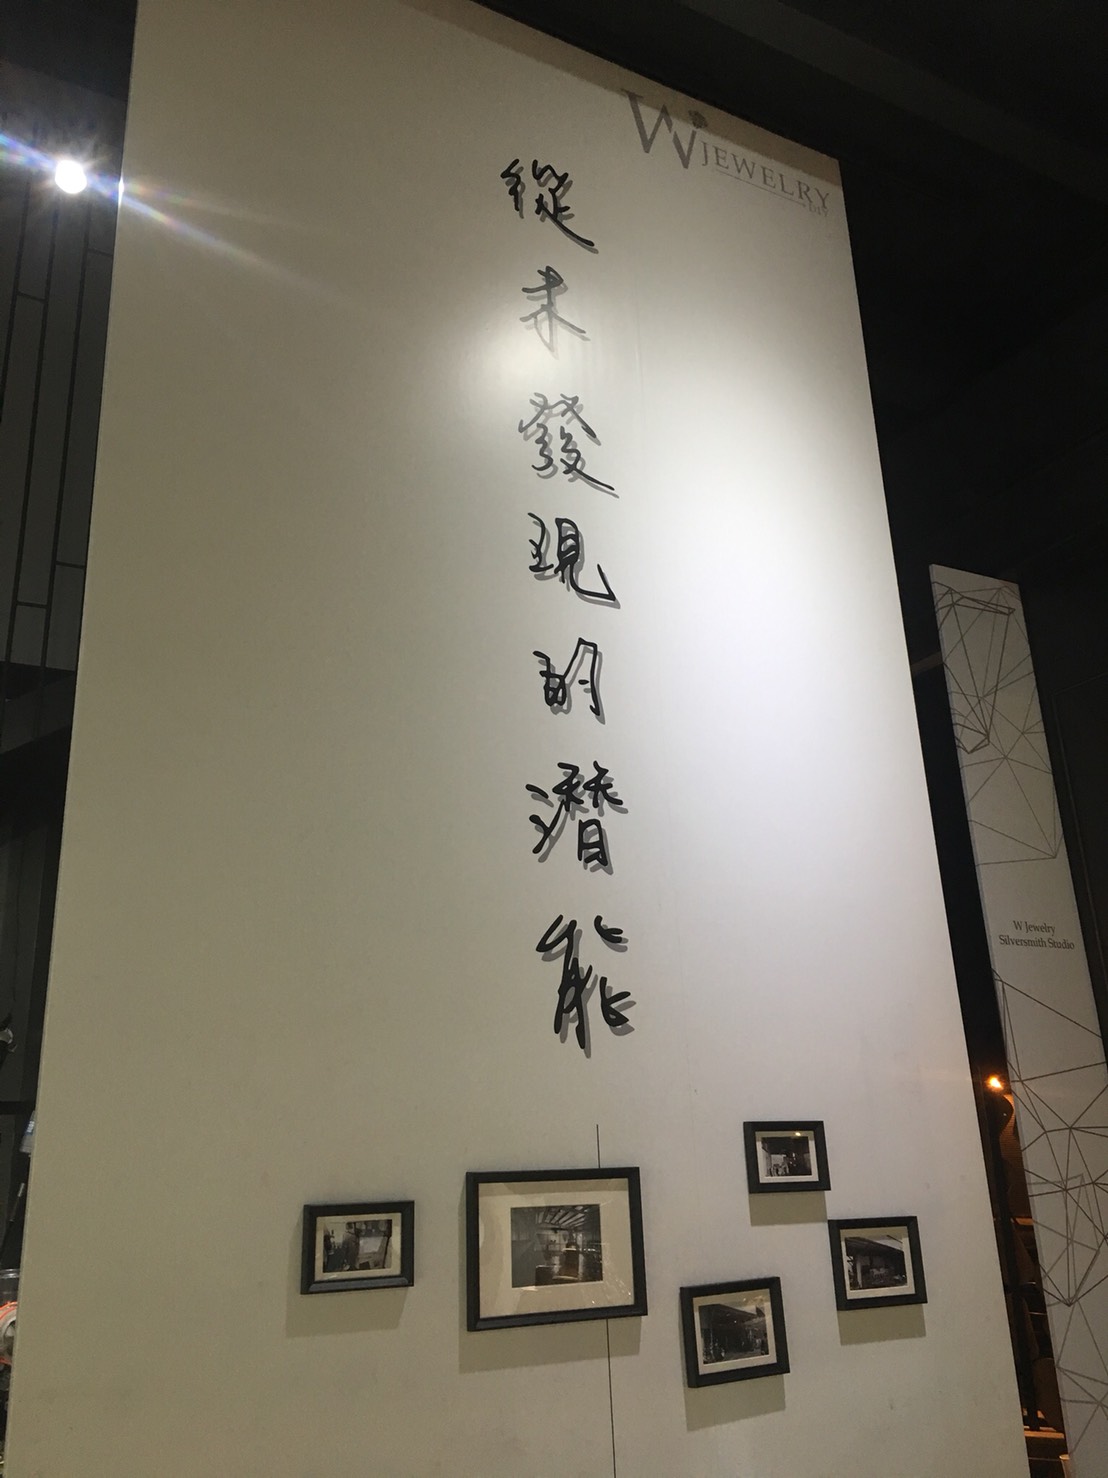 W JEWELRY
DIY
從未發現的潛能
W Jewelry
Silversmith Studio